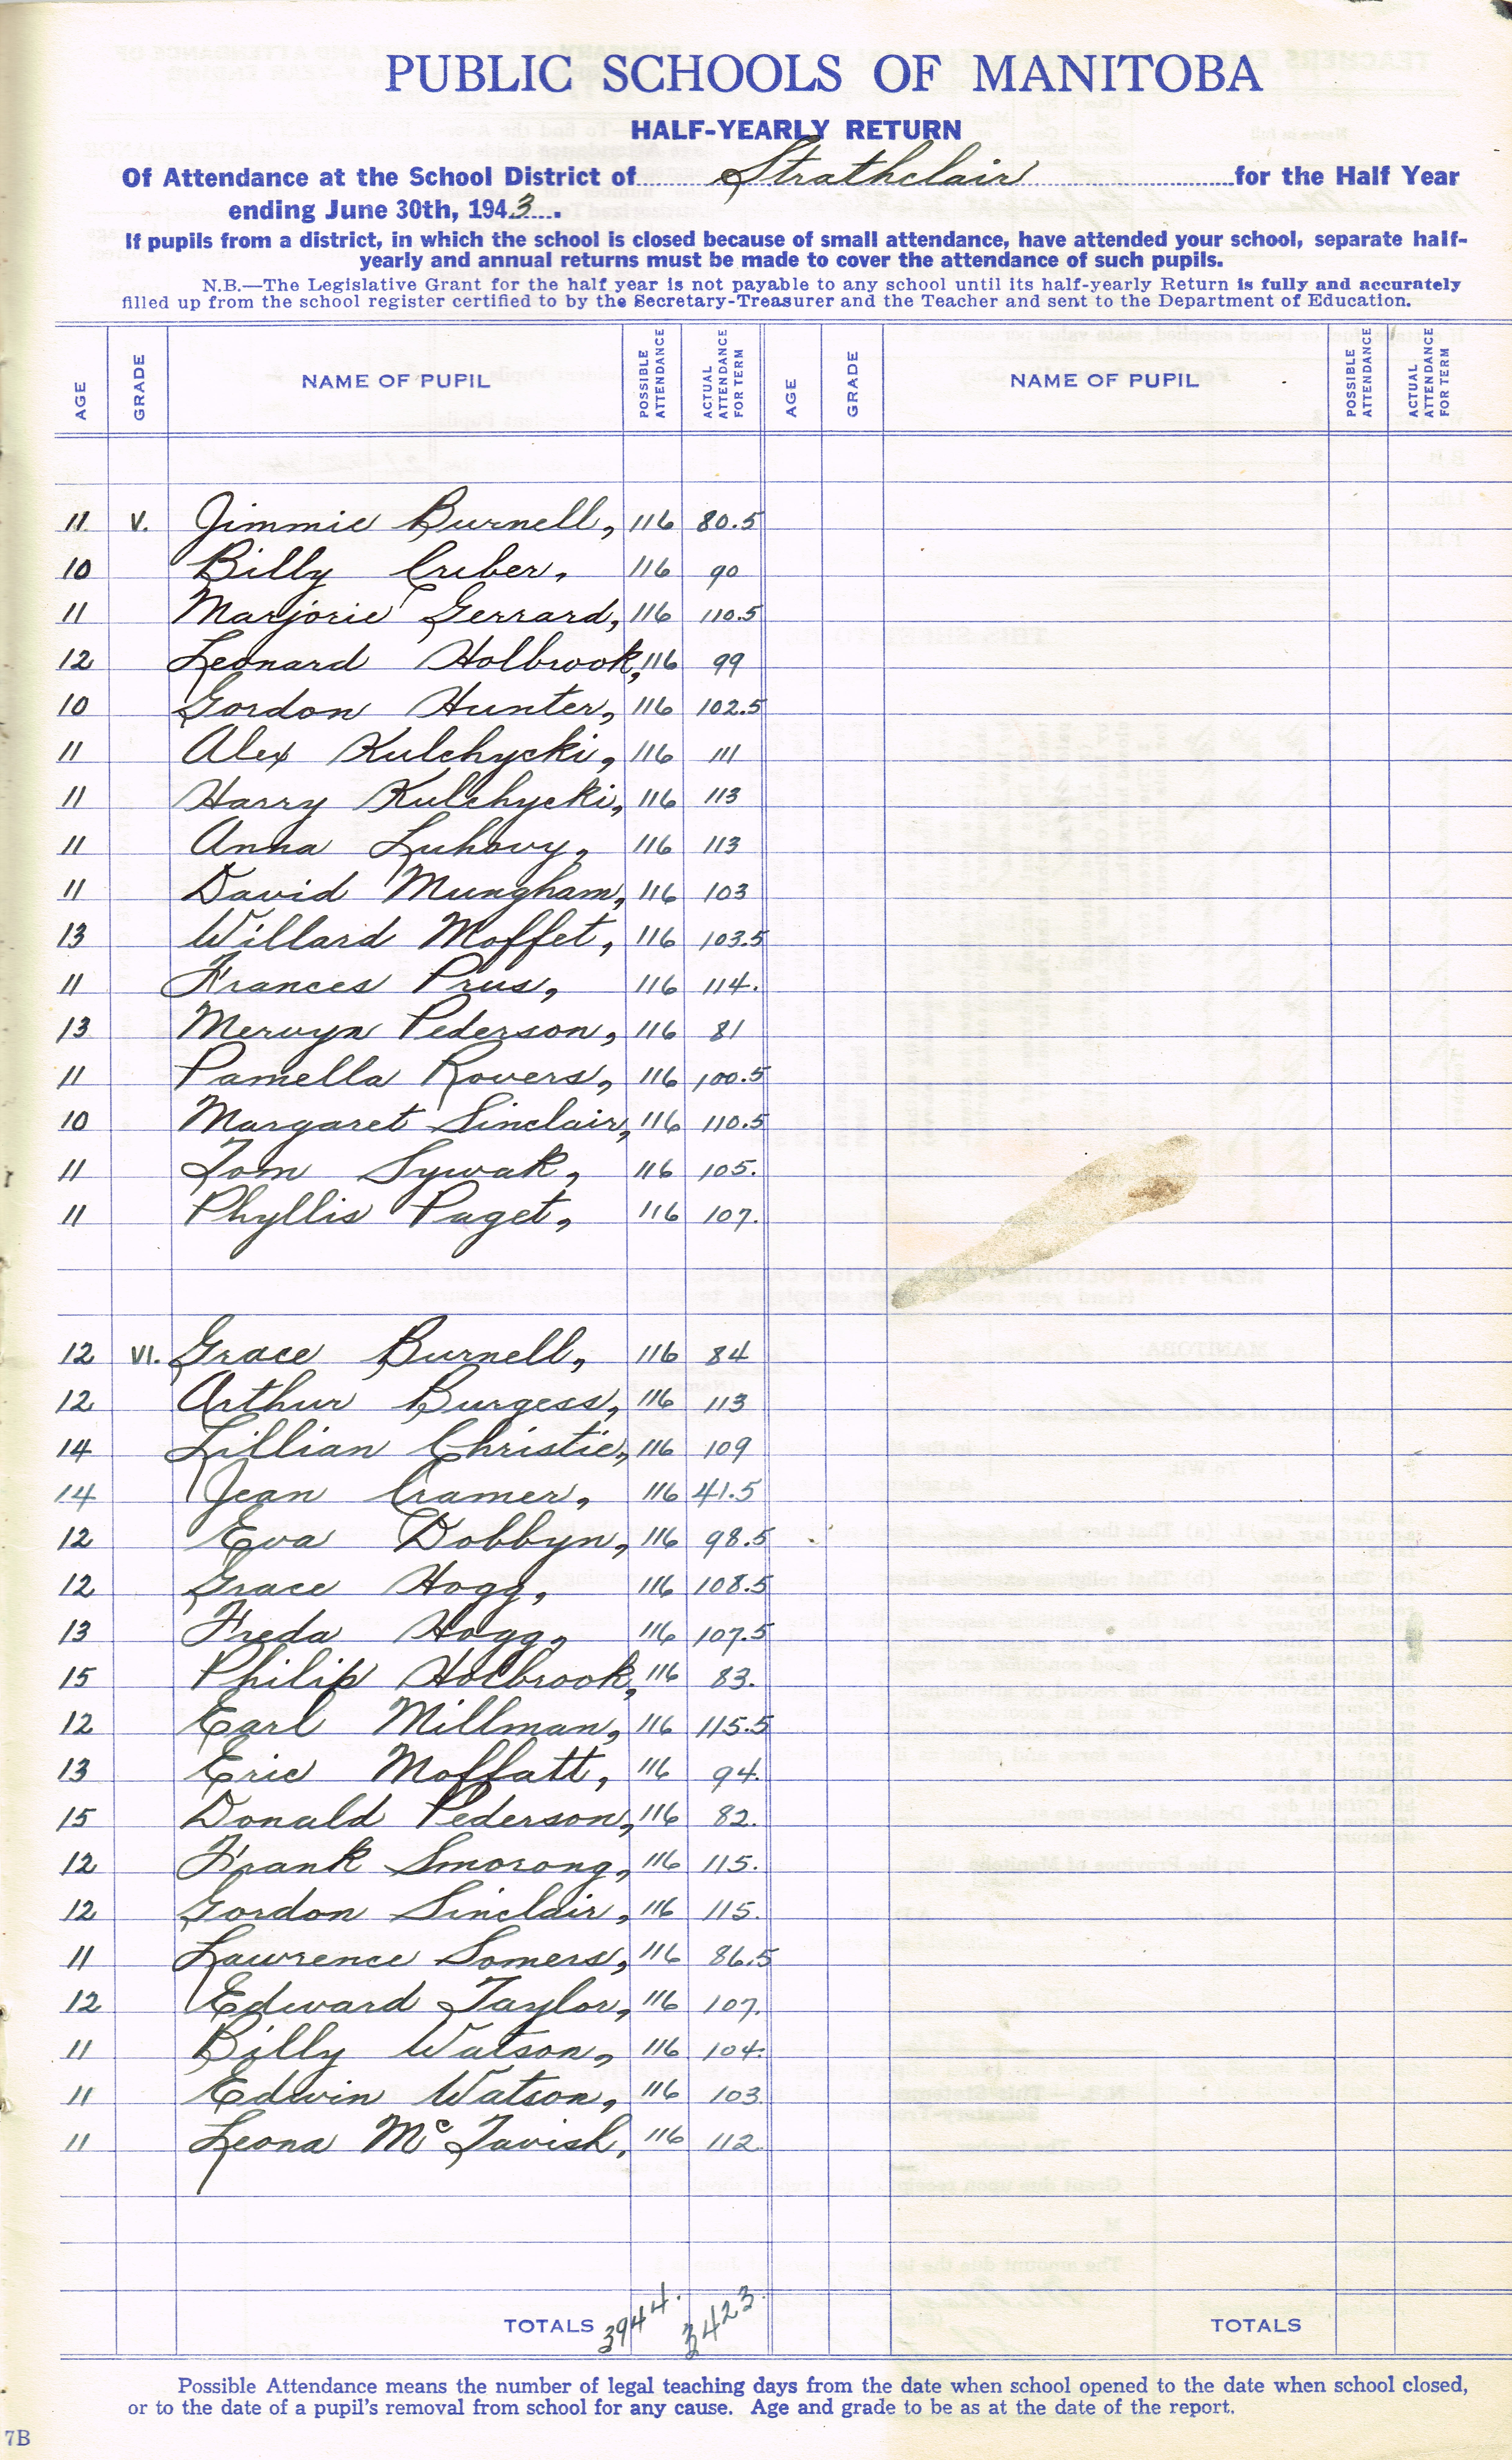 PUBLIC SCHOOLS OF MANITOBA
HALF-YEARLY RETURN
Of Attendance at the School District of Strathclair for the Half Year
ending June 30th, 1943.
If pupils from a district, in which the school is closed because of small attendance, have attended your school, separate half-
yearly and annual returns must be made to cover the attendance of such pupils.
N.B.—The Legislative Grant for the half year is not payable to any school until its half-yearly Return is fully and accurately
filled up from the school register certified to by the Secretary-Treasurer and the Teacher and sent to the Department of Education.
AGE GRADE NAME OF PUPIL POSSIBLE ATTENDANCE ACTUAL ATTENDANCE FOR TERM AGE GRADE NAME OF PUPIL POSSIBLE ATTENDANCE ACTUAL ATTENDANCE FOR TERM
11 V. Jimmie Burnell, 116 80.5
10 Billy Cuber, 116 90
11 Marjorie Gerrard, 116 110.5
12 Leonard Holbrook, 116 99
10 Gordon Hunter, 116 102.5
11 Alex Kulchycki, 116 111
11 Harry Kulchycki, 116 113
11 Anna Luhovy, 116 113
11 David Mungham, 116 103
13 Willard Moffet, 116 103.5
11 Frances Prus, 116 114.
13 Mervyn Pederson, 116 81
11 Pamella Rovers, 116 100.5
10 Margaret Sinclair, 116 110.5
11 Tom Sywak, 116 105.
11 Phyllis Paget, 116 107.
12 VI. Grace Burnell, 116 84
12 Arthur Burgess, 116 113
14 Lillian Christie, 116 109
14 Jean Cramer, 116 41.5
12 Eva Dobbyn, 116 98.5
12 Grace Hogg, 116 108.5
13 Freda Hogg, 116 107.5
15 Philip Holbrook, 116 83.
12 Earl Millman, 116 115.5
13 Eric Moffatt, 116 94.
15 Donald Pederson, 116 82.
12 Frank Smorong, 116 115.
12 Gordon Sinclair, 116 115.
11 Lawrence Somers, 116 86.5
12 Edward Taylor, 116 107.
11 Billy Watson, 116 104.
11 Edwin Watson, 116 103.
11 Leona McTavish, 116 112.
TOTALS 3944. 3423. TOTALS
Possible Attendance means the number of legal teaching days from the date when school opened to the date when school closed,
or to the date of a pupil's removal from school for any cause. Age and grade to be as at the date of the report.
7B